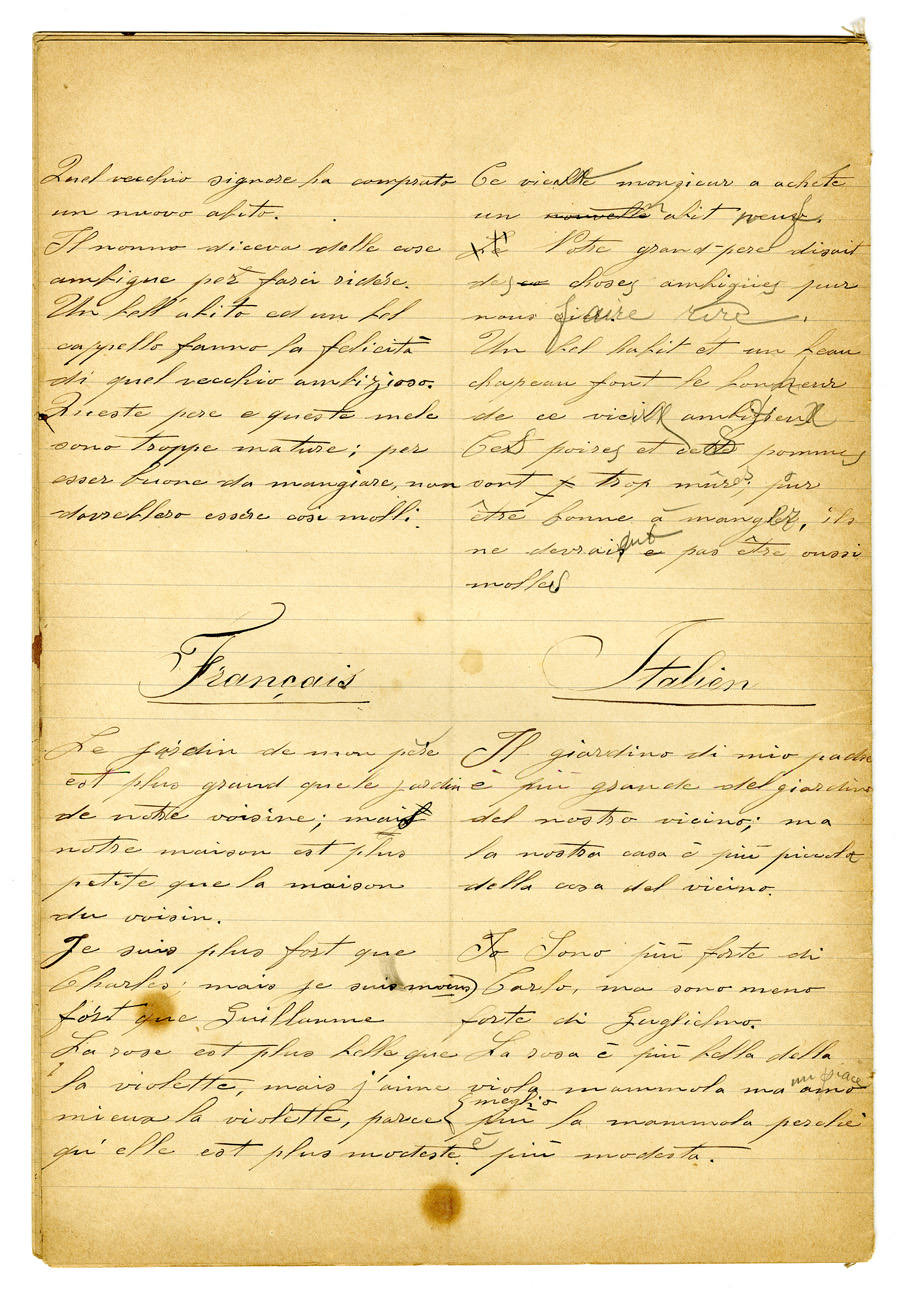 Quel vecchio signore ha comprato
un nuovo abito.
Il nonno diceva delle cose
ambigue per farci ridere.
Un bell' abito ed un bel
cappello fanno la felicità
di quel vecchio ambizioso.
Queste pere e queste mele
sono troppe mature; per
esser buone da mangiare, non
dovrebbero essere così molli.
Ce vieille monsieur a acheté
un nouvelle abit neuf.
Notre grand-père disait
des choses ambigües pur
nous faire rire.
Un bel habit et un beau
chapeau font le bonheur
de ce vieill ambizieux
Ces poires et ces pommes
sont trop mûres; pur
être bonne à manger, ils
ne devraient pas être aussi
molles
Français
Le jardin de mon père
est plus grand que le jardin
de notre voisine; mais
notre maison est plus
petite que la maison
du voisin.
Je suis plus fort que
Charles; mais je suis moins
fort que Guillaume
La rose est plus belle que
la violette, mais j'aime
mieux la violette, parce
qu'elle est plus modeste.
Italien
Il giardino di mio padre
è più grande del giardino
del nostro vicino; ma
la nostra casa è più piccola
della casa del vicino.
Io Sono più forte di
Carlo, ma sono meno
forte di Guglielmo.
La rosa è più bella della
viola mammola ma amo
mi piace
meglio
più la mammola perchè
è più modesta.